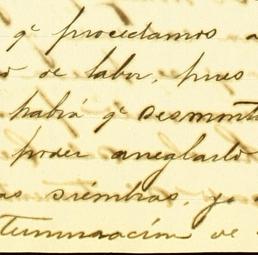 qe procedamos a
o de labor, pues
habrá qe desmonta
poder arreglarlo
as siembras, ya
terminación de